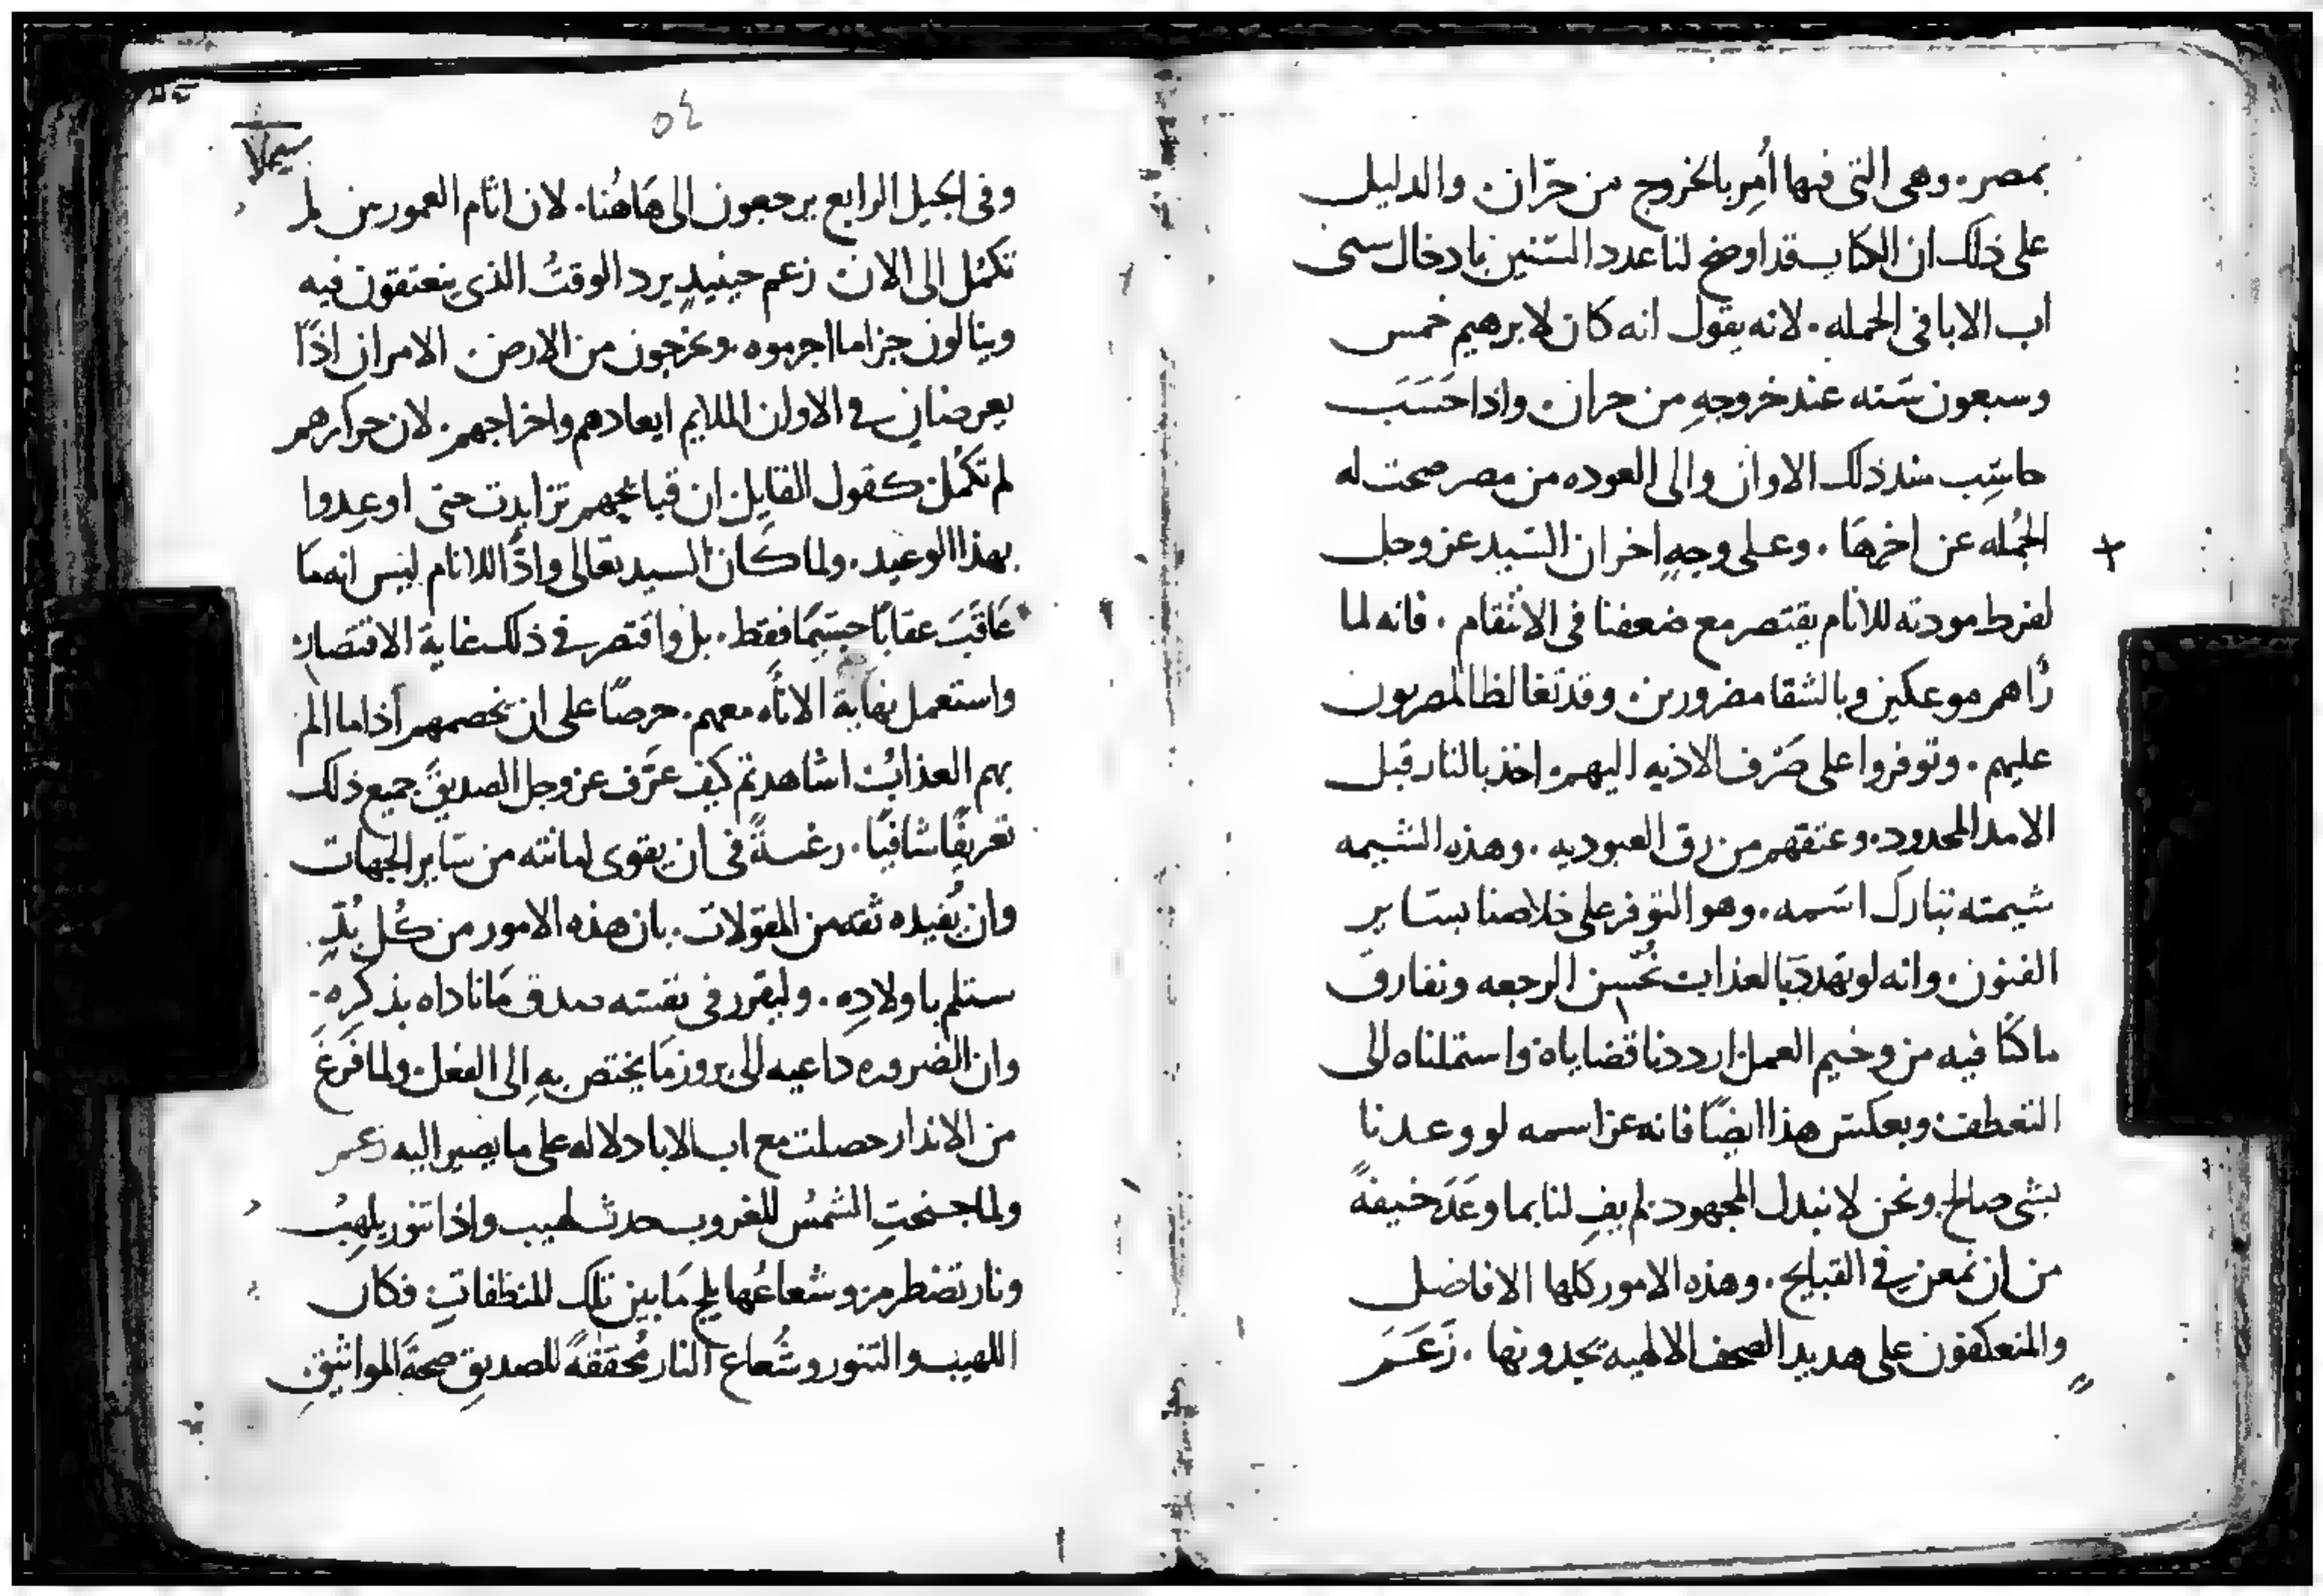 بمصر. وهى التى فيها أُمِر بالخروج من حرّان. والدليل
على ذلك ان الكتاب قد اوضح لنا عدد السنين بادخال سنى
اب الابا فى الجمله. لانه يقول انه كان لابرهيم خمس
وسبعون سَنه عند خروجهِ من حران. واذا حَسَبَ
حاسِب منذ ذلك الاوان والى العوده من مصر صحت له
الجُمله عن اخرهَا. وعلى وجهٍ اخر ان السَيد عز وجل
لفرط مودته للانام يقتصر مع ضعفنا فى الانتقام. فانه لما
رأهم موعكين وبالشقا مضرورين. وقد تغالظ المصريون
عليهم. وتوفروا على صَرْف الاذيه اليهم. اخذ بالثار قبل
الامد المحدود. وعتقهم من رق العبوديه. وهذه الشيمه
شيمته تبارك اسَمه. وهو التوفر على خلاصنا بسَاير
الفنون. وانه لو تهددَ بالعذاب نُحْسن الرجعه ونفارق
ما كنا فيه من وخيم العمل. ارددنا قضاياه. واستملناه الى
التعطف. وبعكس هذا ايضًا فانه عز اسمه لو وعدنا
بشى صالح. ونحن لا نبدل المجهود. لم يفِ لنا بما وعَدَ خيفةً
من ان نمعن فى القبايح. وهذه الامور كلها الافاضل
والمنعكفون على هديد الصحف الالهيه يجدونها. زَعَمَ
٥٤
وفى الجيل الرابع يرجعون الى هَاهُنا. لان اثام العمورين لم
تكمُل الى الان. زعم حينيدٍ يرد الوقتُ الذى ينعتقون فيه
وينالون جزا ما اجرموه. ويخرجون من الارض. الامران اذًا
يعرضان فى الاوان الملايم ابعادهم واخراجهم. لان جرايرهم
لم تكمُل. كقول القايل ان قبايحهم تزايدت حتى اوعِدوا
بهذا الوعيد. ولما كان السيد تعالى وادًّا للانام ليس انه مَا
عَاقَبَ عقابًا جسَيمًا فقط. بل واقتصر فى ذلك غاية الاقتصَار
واستعمل نهاية الاناه معهم. حرصًا على ان يخصمهم أذاما الم
بهم العذابُ. اشاهدتم كيف عَرَّف عز وجل الصديقَ جميع ذلك
تعريفًا شافيًا. رغبةً فى ان يقوى امانته من سَاير الجهات
وان يُفيده ثقه من المقولات. بان هذه الامور من كُل بُدٍّ
ستلم باولادِه. وليقرر فى نفسَه صدق مَا ناداه بذكره.
وان الضروره داعيه الى بروز مَا يختص بهِ الى الفعل. ولما فَرَغَ
من الانذار حصلت مع اب الابا دلاله على ما يصير اليه زعم
ولما جنحتِ الشمسُ للغروب حدث لهيب واذا تنور يلهبُ
ونار تضطرم وشعاعُها يلج مَا بين تلك المنظفاتِ فكان
اللهيب والتنور وشُعاع النار مُحققةً للصديقِ صحةَ المواثيقِ